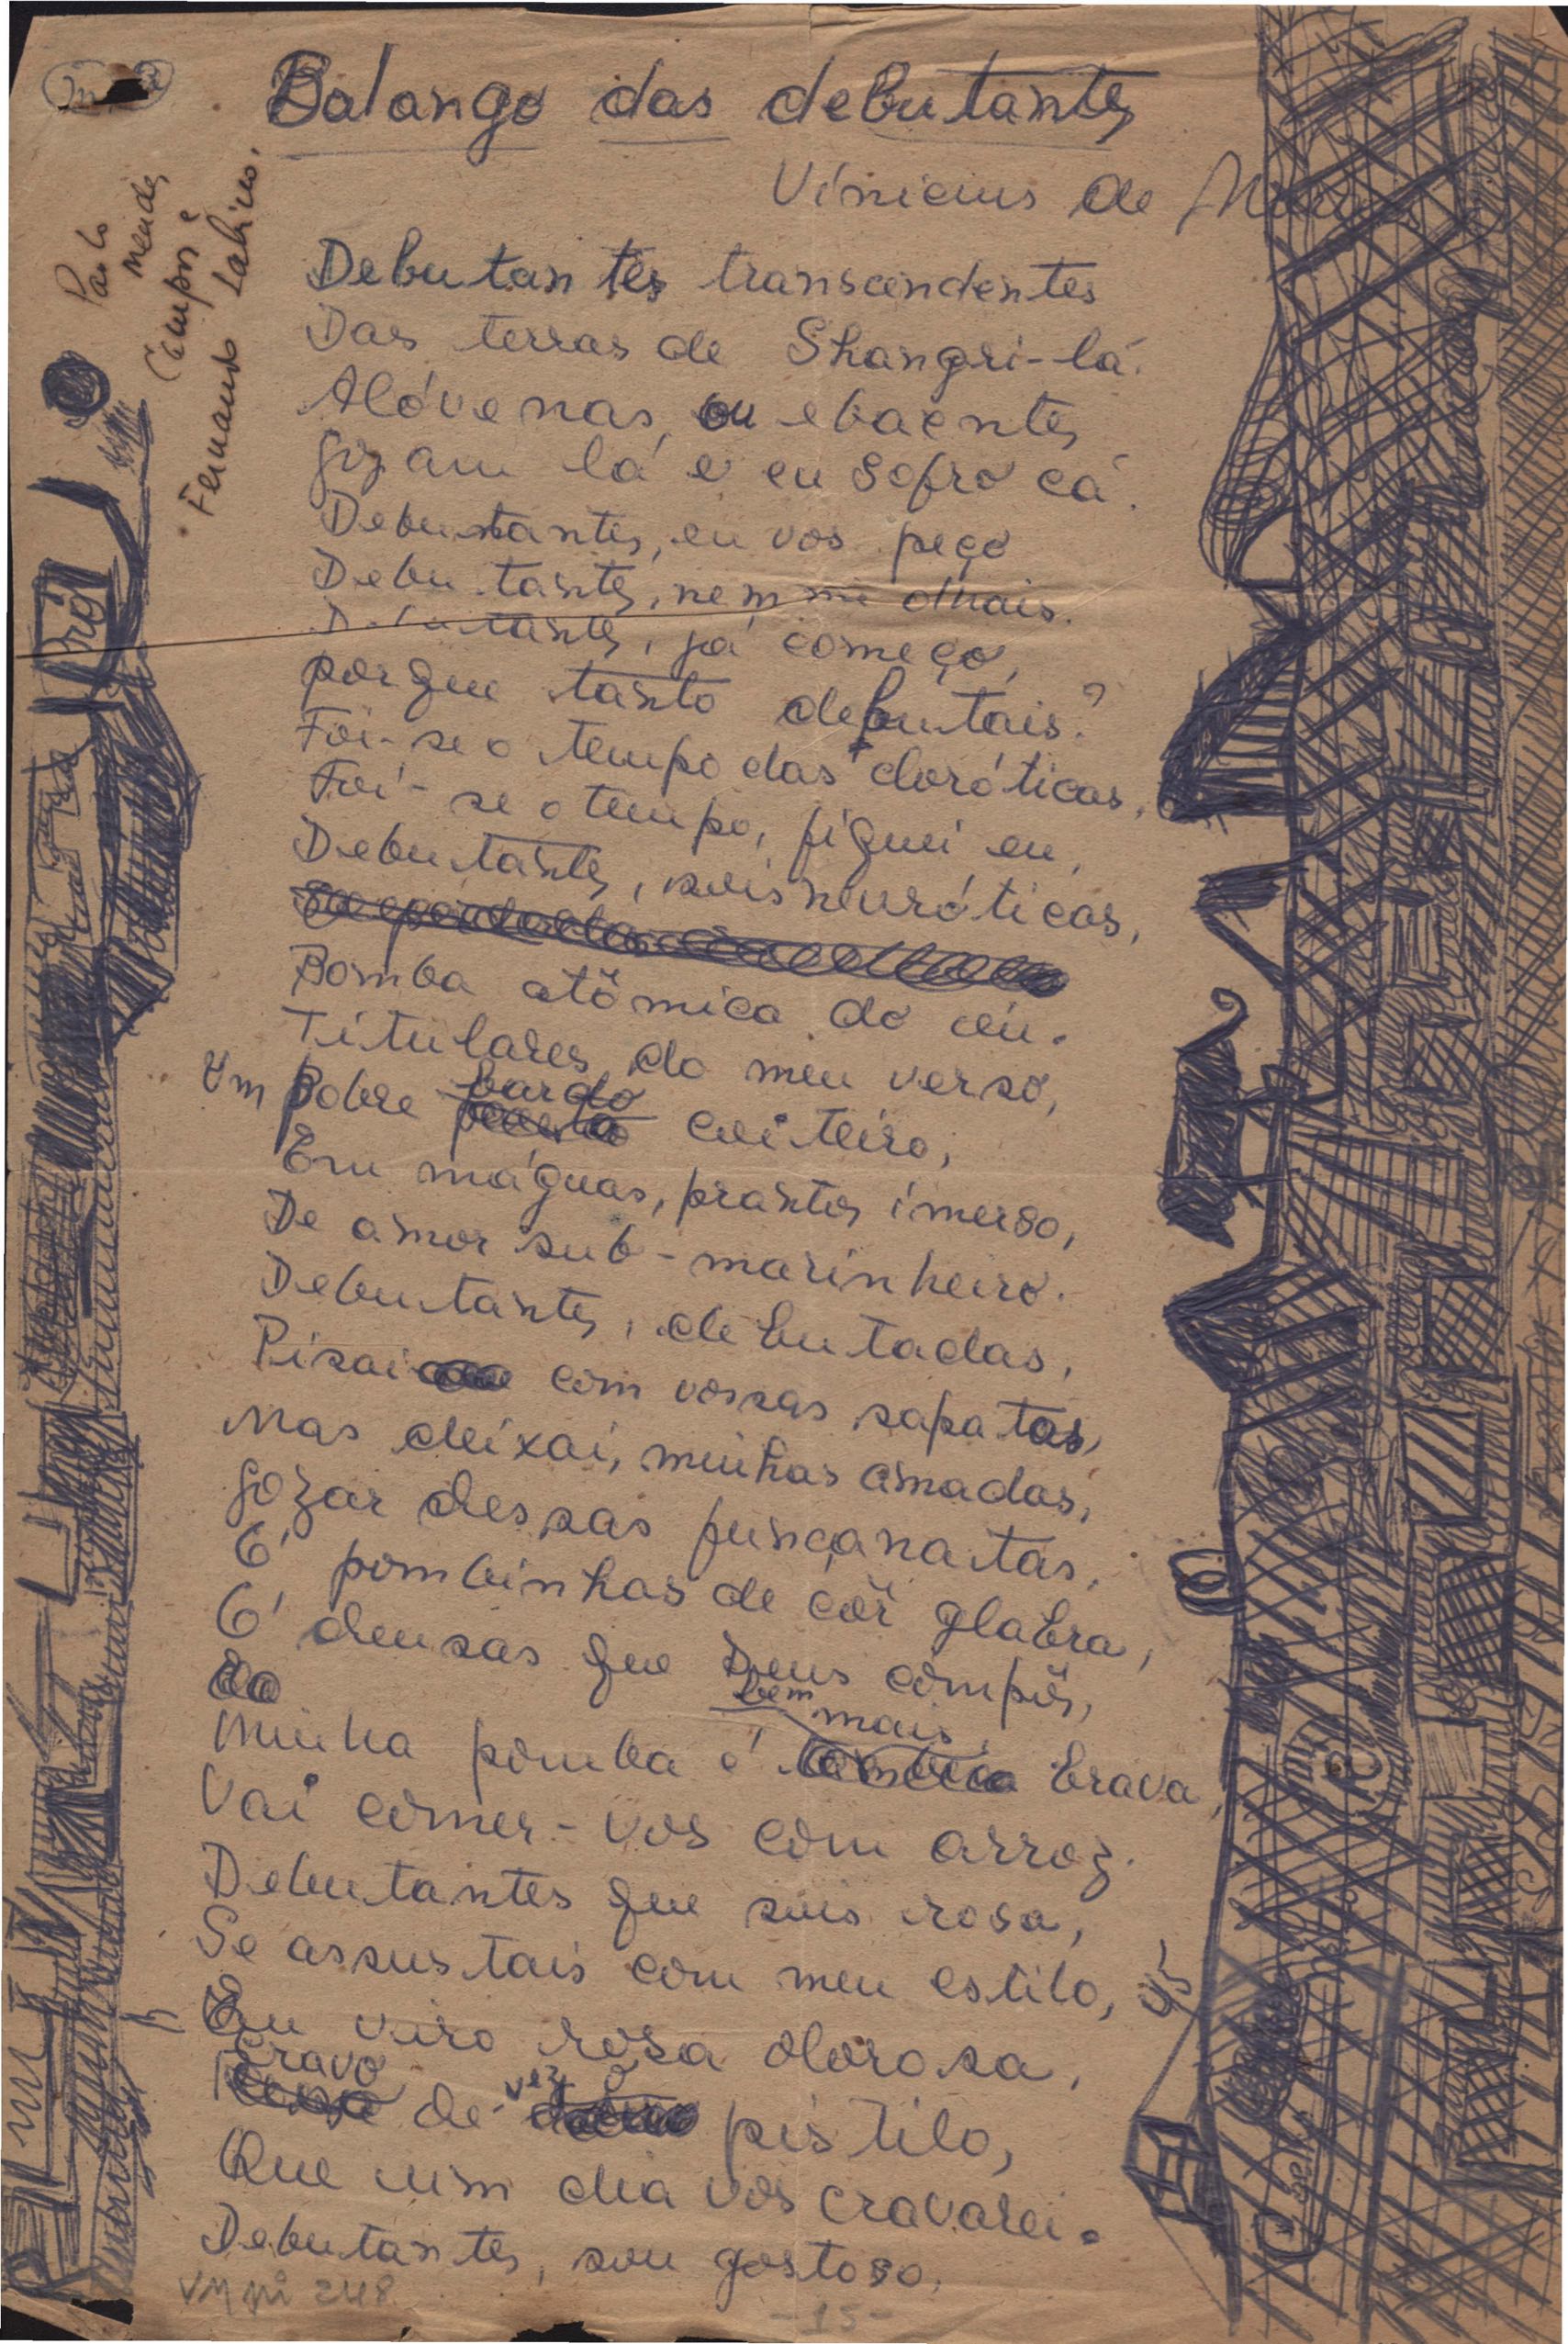 Balango das debutantes
Vinicius de
Paulo
Mendes
Campos e
Fernando Sabino.
Debutantes transcendentes
Das terras de Shangri-lá.
Alóvenas, ou ebaentes
gozam lá e eu sofro cá.
Debutantes, eu vos peço
Debutantes, nem me olhais.
Debutantes, já começo,
porque tanto debutais?
Foi-se o tempo das cloróticas,
Foi-se o tempo, fiquei eu,
Debutantes, sois neuróticas,
Bomba atômica do céu.
Titulares do meu verso,
Um pobre bardo coiteiro,
Em máguas, prantos imerso,
De amor sub-marinheiro.
Debutantes, debutadas,
Pisai com vossas sapatas,
Mas deixai, minhas amadas,
gozar dessas punçanatas,
Ó pombinhas de côr glabra,
Ó deusas que Deus compôs,
Minha pomba é bem mais brava,
Vai comer-vos com arroz.
Debutantes que sois rosa,
Se assustais com meu estilo,
Eu viro rosa olorosa,
Cravo de vez o pistilo,
Que um dia vos cravarei.
Debutantes, sou gostoso,
VM pi 248
-15-